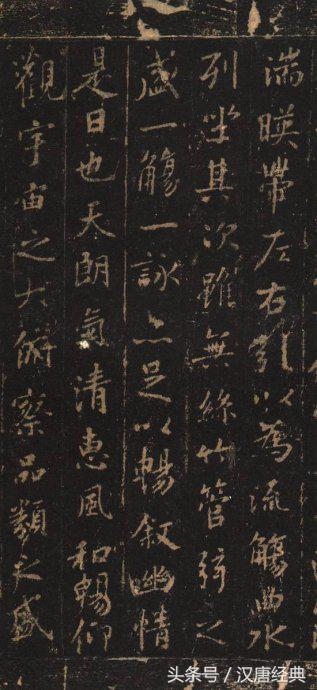 湍暎帶左右引以為流觴曲水
列坐其次雖無絲竹管弦之
盛一觴一詠亦足以暢敘幽情
是日也天朗氣清惠風和暢仰
觀宇宙之大俯察品類之盛
头条号 / 汉唐经典